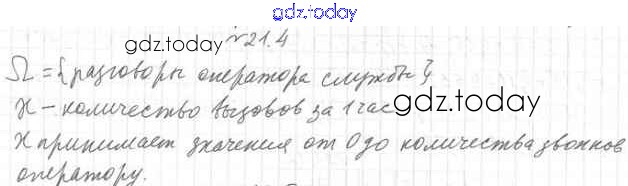 gdz.today
gdz.today №21.4
Ω = {разговоры оператора службы}
X – количество вызовов за 1 час gdz.today
X принимает значения от 0 до количества звонков
оператору.